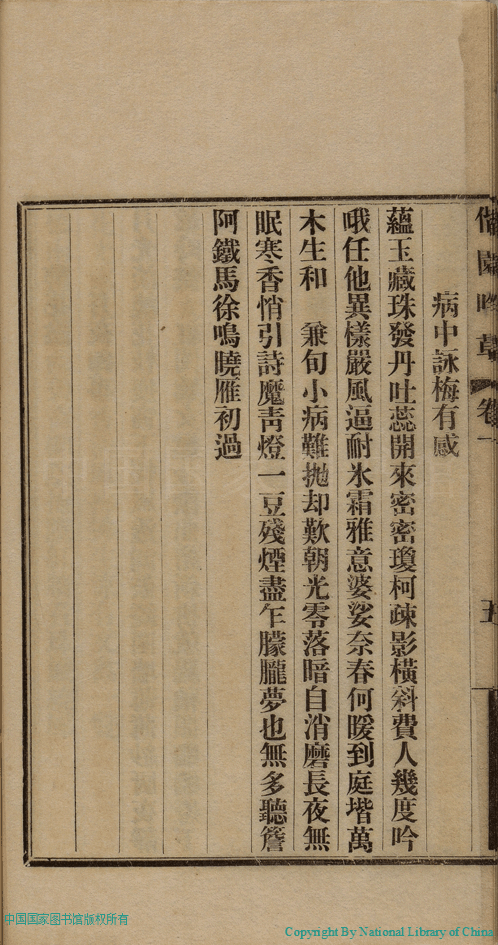 園吟草 卷一 五
病中詠梅有感
蘊玉藏珠發丹吐蕊開來密密瓊柯疎影橫斜費人幾度吟
哦任他異樣嚴風逼耐氷霜雅意婆娑奈春何暖到庭堦萬
木生和 兼旬小病難抛却歎朝光零落暗自消磨長夜無
眠寒香悄引詩魔靑燈一豆殘煙盡乍朦朧夢也無多聽簷
阿鐵馬徐鳴曉雁初過
中国国家图书馆版权所有
Copyright By National Library of China